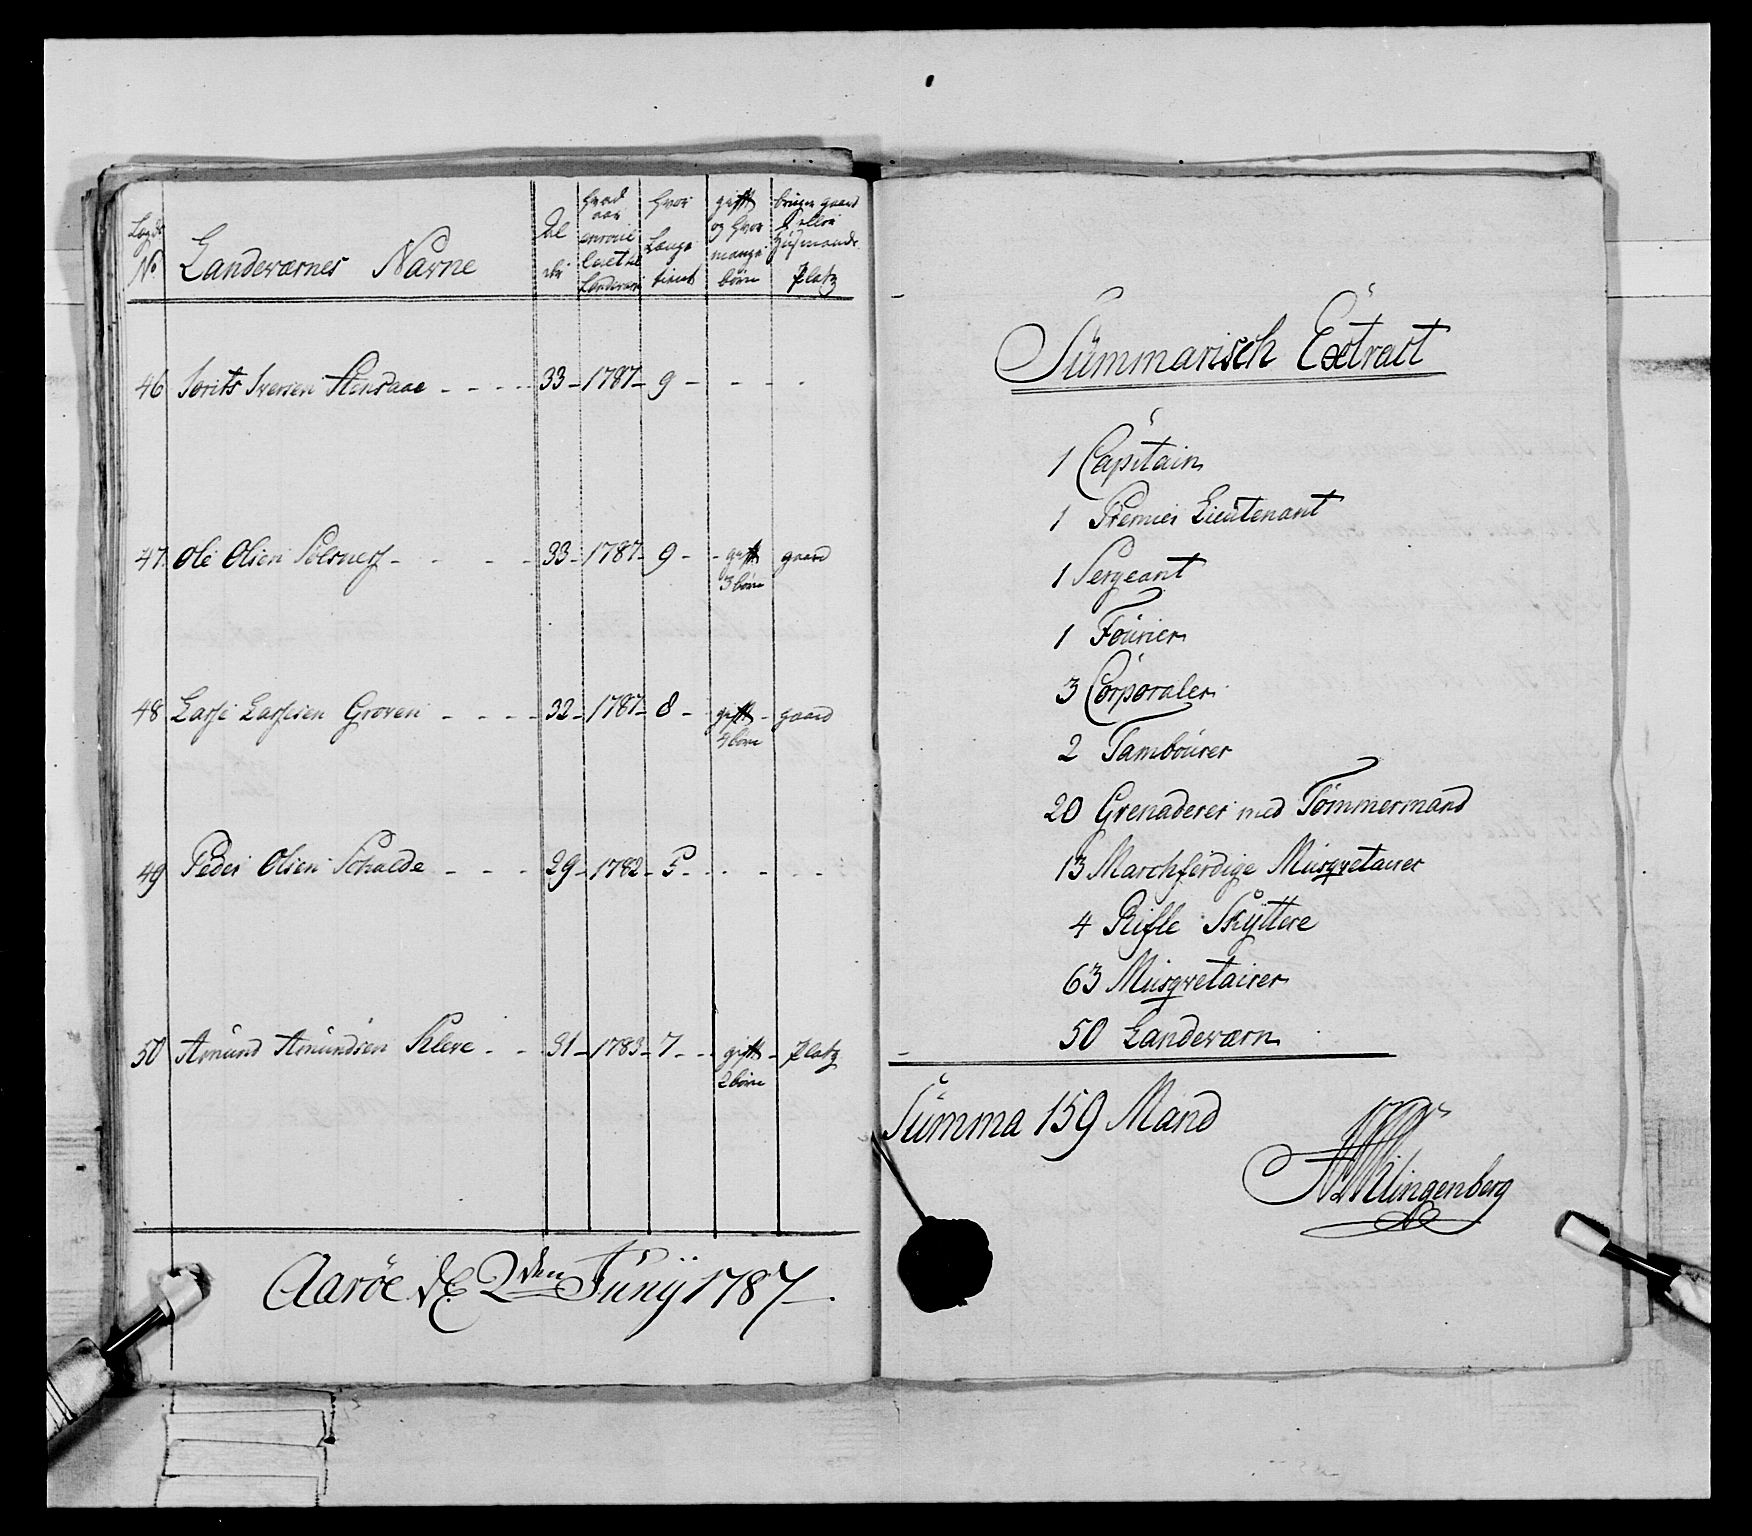 Lægds
No
Landeværnes Navne
Al
der
hvad
aar
enroul
Landevær
hvor
Længe
tient
gift
og hvor
mange
børn
bruger gaard
eller
Huusmands
Platz
46 Iversen - - - - 33 - 1787 - 9 - - - -
47 Ole Olsen - - - - 33 - 1787 - 9 - - gift gaard
3 børn
48 Larse Larsen Groven - - - - 32 - 1787 - 8 - gift - gaard
4 børn
49 Peder Olsen - - - 29 - 1782 - 5 - - - -
50 Amund Amundsen Kleve - - 31 - 1783 - 7 - - gift - Platz
2 børn
Aarøe d 2den Junij 1787
Summarisch Extract
1 Capitain
1 Premier Lieutenant
1 Sergeant
1 Fourier
3 Corporaler
2 Tambourer
20 Grenaderer med Tømmermand
13 Marchferdige Musqvetairer
4 Rifle Skyttere
63 Musqvetairer
50 Landeværn
Summa 159 Mand
Klingenberg